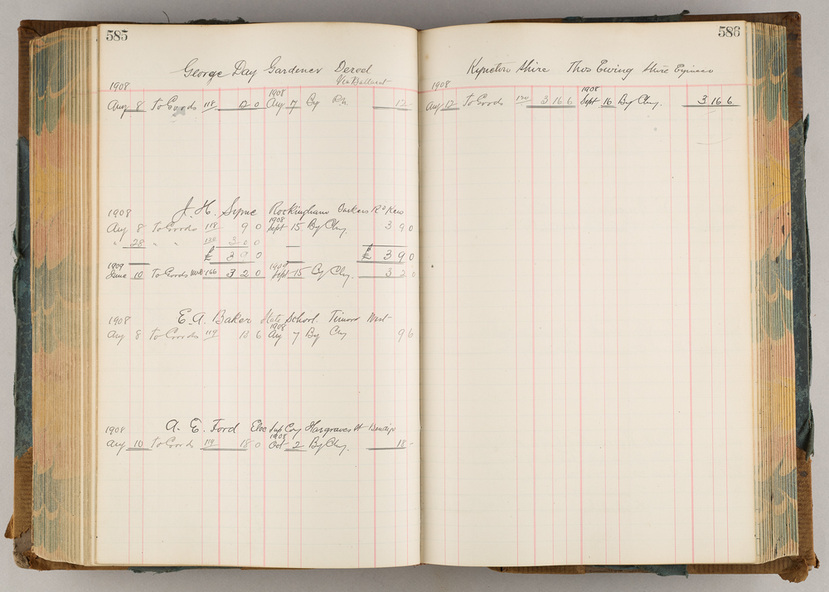 585
George Day Gardener Dereel
Via Ballarat
1908
1908
Aug 8 To Goods 118 12 0 Aug 17 By 12 -
1908 J. H. Syme Rockingham Rd Kew
1908
Aug 8 To Goods 118 9 0 Sept 15 By Chq. 3 9 0
" 28 " " 3 0 0
£ 3 9 0 £ 3 9 0
1909 1909
June 10 To Goods 166 3 2 0 Sept 15 By Chq. 3 2 0
1908 E. A. Baker State School Timor West
1908
Aug 8 To Goods 119 6 Aug 7 By Chq 9 6
1908 A. E. Ford Elec Sup Coy Hargreaves St Bendigo
1908
Aug 10 To Goods 119 18 0 Oct 2 By Chq. 18 -
586
Kyneton Shire Thos Ewing Shire Engineer
1908
1908
Aug 12 To Goods 120 3 16 6 Sept 16 By Chq. 3 16 6